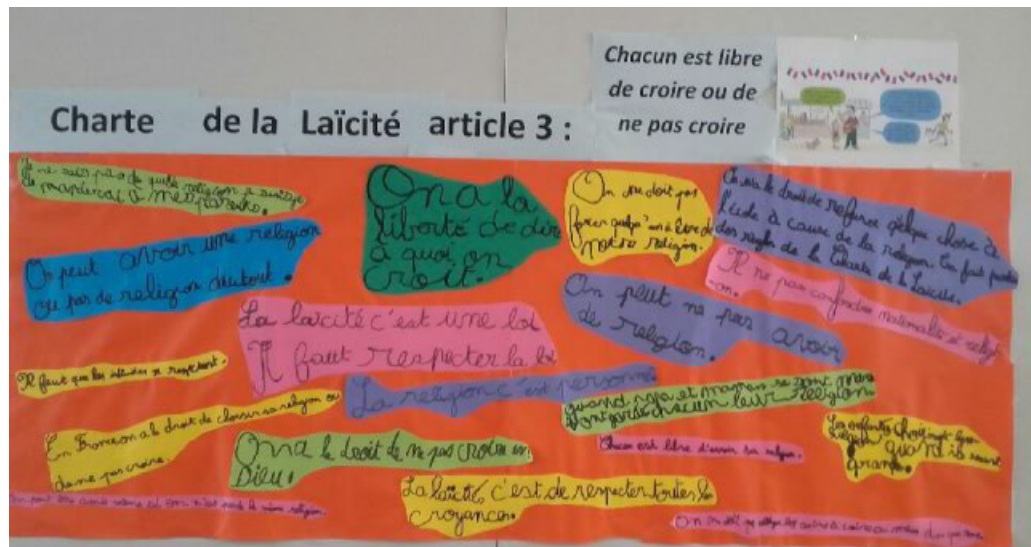 Charte de la Laïcité article 3 :
Chacun est libre
de croire ou de
ne pas croire
Je ne sais pas de quelle religion je suis je
demanderai à mes parents.
On peut avoir une religion
ou pas de religion du tout.
On a la
liberté de dire
à quoi on
croit.
On ne doit pas
forcer quelqu'un à être de
notre religion.
le droit de refuser quelque chose à
l'école à cause de la religion. En fait
des règles de la Charte de la Laïcité.
Il ne pas confondre nationalité et religi
on.
La laïcité c'est une loi
Il faut respecter la loi
On peut ne pas avoir
de religion.
Il faut que les se respectent.
La religion c'est personnel
quand papa et maman se sont mariés
ont gardé chacun leur religion
En France on a le droit de choisir sa religion ou
de ne pas croire.
On a le droit de ne pas croire en
Dieu.
Chacun est libre d'avoir sa religion.
Les enfants choisissent leur
religion quand ils seront
grands.
La laïcité, c'est de respecter toutes les
croyances.
On peut être amis même si on n'est pas de la même religion.
On ne doit pas obliger les autres à croire